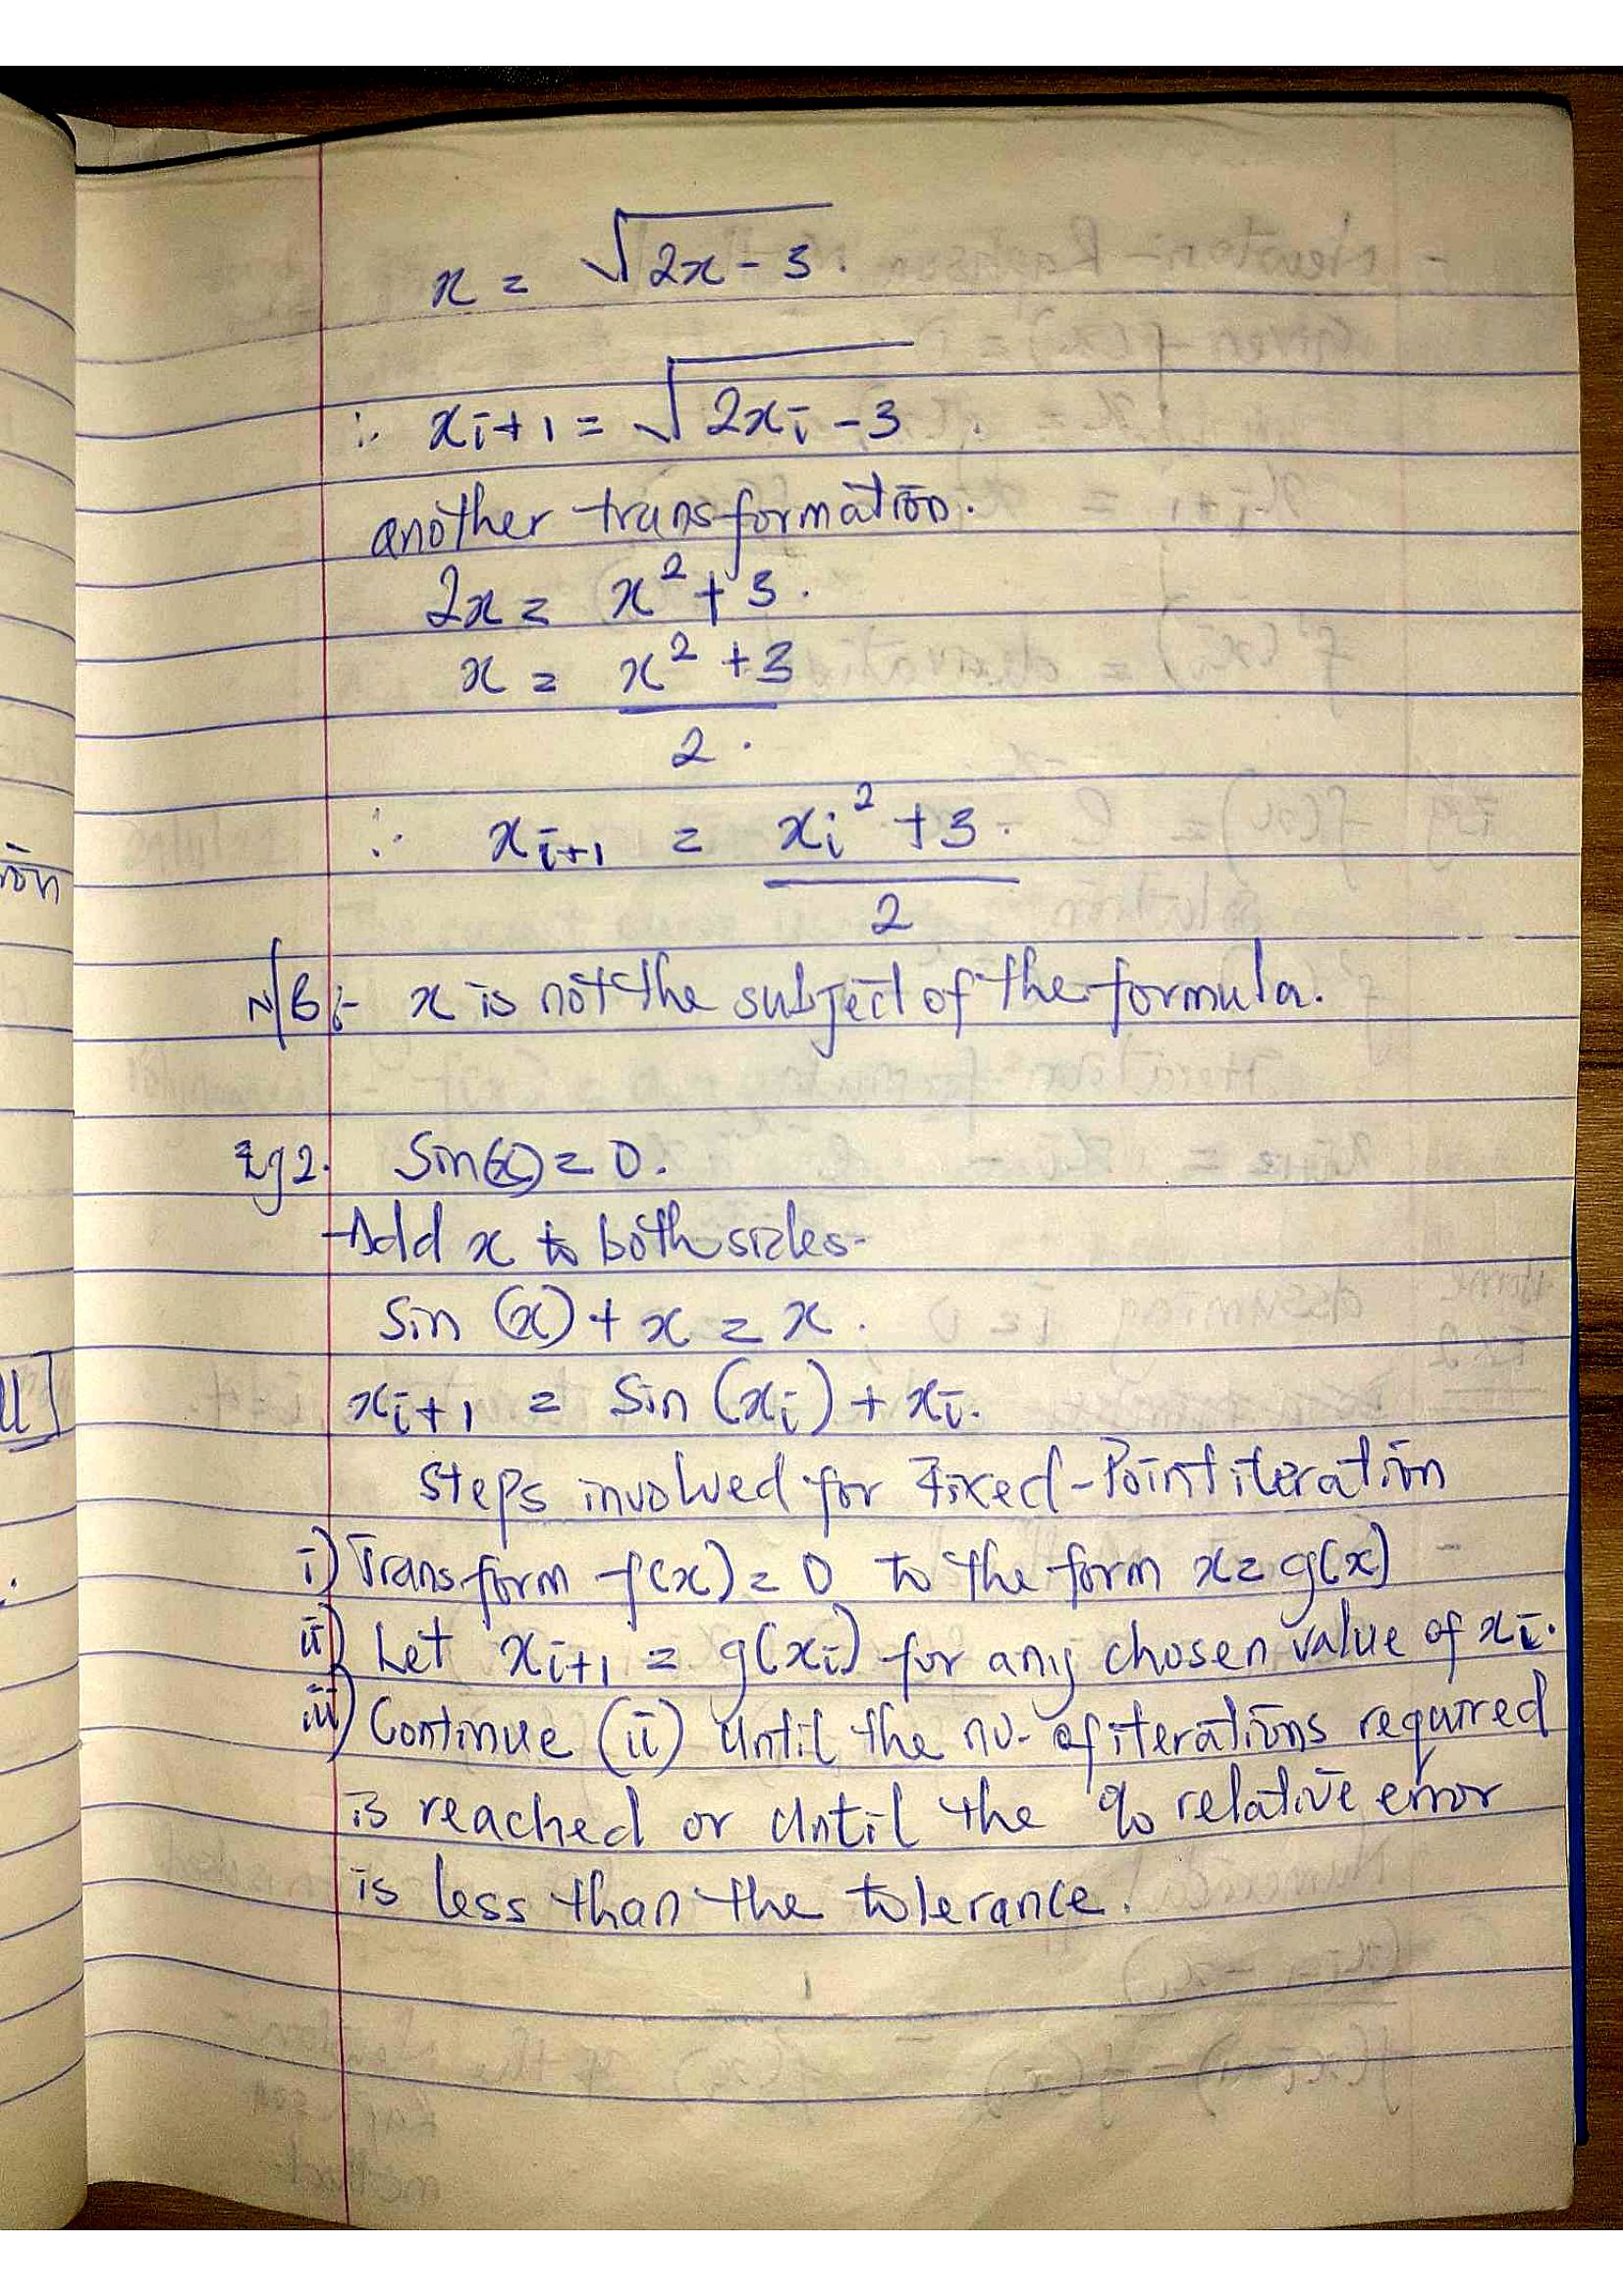 x = √2x - 3.
∴ xi+1 = √2xi - 3
another transformation.
2x = x² + 3.
x = x² + 3
2.
∴ xi+1 = xi² + 3.
2
N/B:- x is not the subject of the formula.
Eg 2. Sin(x) = 0.
-Add x to both sides-
Sin (x) + x = x.
xi+1 = Sin (xi) + xi.
Steps involved for Fixed-Point iteration
i) Transform f(x) = 0 to the form x = g(x)
ii) Let xi+1 = g(xi) for any chosen value of xi.
iii) Continue (ii) until the no. of iterations required
is reached or until the % relative error
is less than the tolerance.